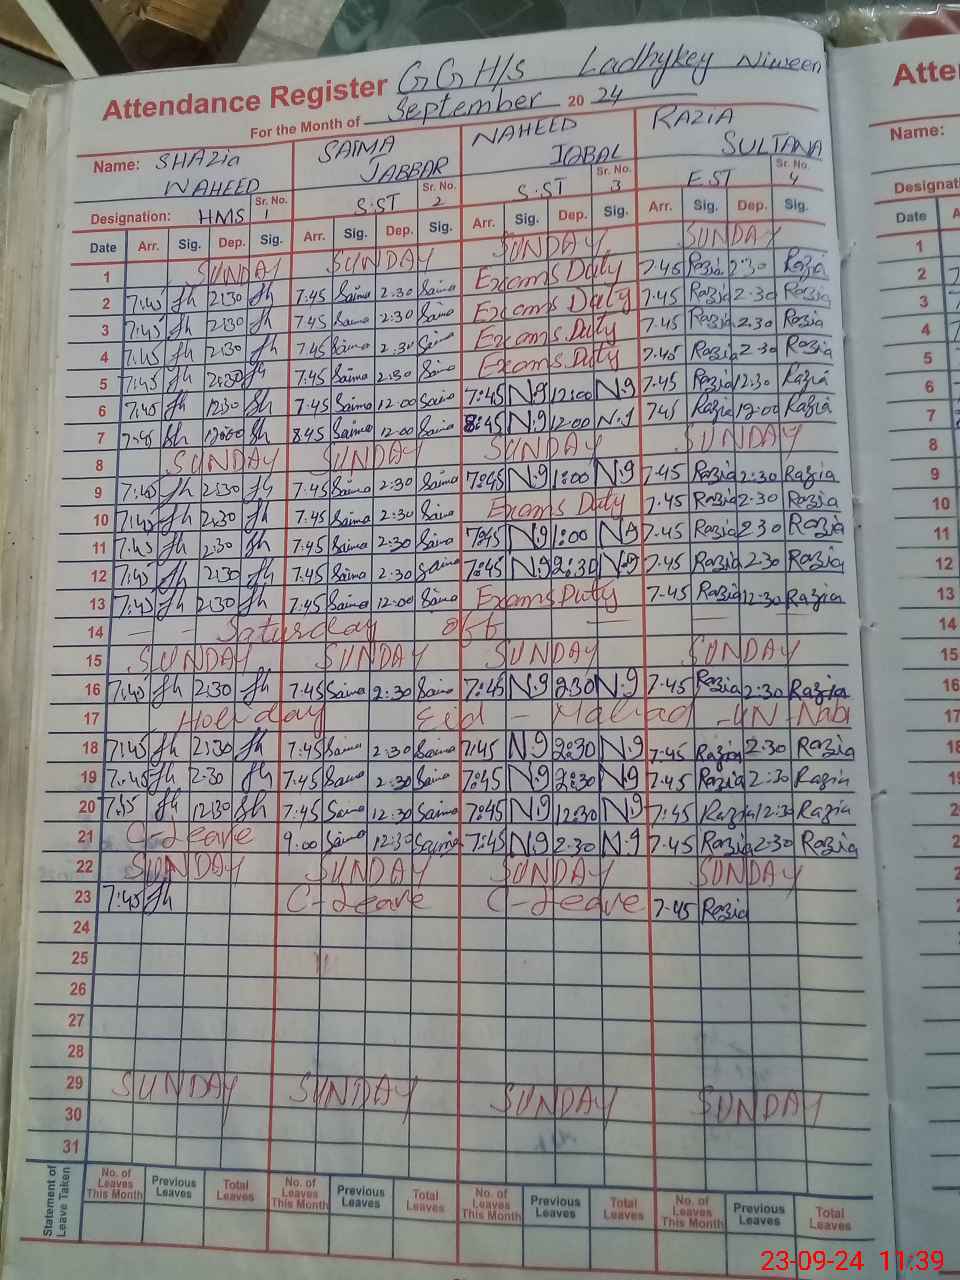 Attendance Register GGH/s Ladhykey Niween
For the Month of September 20 24
Name: SHAZia WAHEED SAIMA JABBAR NAHEED IQBAL RAZIA SULTANA
Designation: HMS Sr. No. 1 S.ST Sr. No. 2 S.ST Sr. No. 3 E.ST Sr. No. 4
Date Arr. Sig. Dep. Sig. Arr. Sig. Dep. Sig. Arr. Sig. Dep. Sig. Arr. Sig. Dep. Sig.
1 SUNDAY SUNDAY SUNDAY SUNDAY
2 7:45 Sh 2:30 Sh 7:45 Saima 2:30 Saima Exams Duty 7:45 Razia 2:30 Razia
3 7:45 Sh 2:30 Sh 7:45 Saima 2:30 Saima Exams Duty 7:45 Razia 2:30 Razia
4 7:45 Sh 2:30 Sh 7:45 Saima 2:30 Saima Exams Duty 7:45 Razia 2:30 Razia
5 7:45 Sh 2:30 Sh 7:45 Saima 2:30 Saima Exams Duty 7:45 Razia 2:30 Razia
6 7:45 Sh 12:30 Sh 7:45 Saima 12:00 Saima 7:45 N.9 12:00 N.9 7:45 Razia 12:30 Razia
7 7:45 Sh 12:00 Sh 8:45 Saima 12:00 Saima 8:45 N.9 12:00 N.9 7:45 Razia 12:00 Razia
8 SUNDAY SUNDAY SUNDAY SUNDAY
9 7:45 Sh 2:30 Sh 7:45 Saima 2:30 Saima 7:45 N.9 1:00 N.9 7:45 Razia 2:30 Razia
10 7:45 Sh 2:30 Sh 7:45 Saima 2:30 Saima Exams Duty 7:45 Razia 2:30 Razia
11 7:45 Sh 2:30 Sh 7:45 Saima 2:30 Saima 7:45 N.9 1:00 N.9 7:45 Razia 2:30 Razia
12 7:45 Sh 2:30 Sh 7:45 Saima 2:30 Saima 7:45 N.9 2:30 N.9 7:45 Razia 2:30 Razia
13 7:45 Sh 2:30 Sh 7:45 Saima 12:00 Saima Exams Duty 7:45 Razia 12:30 Razia
14 — - Saturday off — — —
15 SUNDAY SUNDAY SUNDAY SUNDAY
16 7:45 Sh 2:30 Sh 7:45 Saima 2:30 Saima 7:45 N.9 2:30 N.9 7:45 Razia 2:30 Razia
17 Holiday Eid - - UN - Nabi
18 7:45 Sh 2:30 Sh 7:45 Saima 2:30 Saima 7:45 N.9 2:30 N.9 7:45 Razia 2:30 Razia
19 7:45 Sh 2:30 Sh 7:45 Saima 2:30 Saima 7:45 N.9 2:30 N.9 7:45 Razia 2:30 Razia
20 7:45 Sh 12:30 Sh 7:45 Saima 12:30 Saima 7:45 N.9 12:30 N.9 7:45 Razia 12:30 Razia
21 C-Leave 9:00 Saima 12:30 Saima 7:45 N.9 2:30 N.9 7:45 Razia 2:30 Razia
22 SUNDAY SUNDAY SUNDAY SUNDAY
23 7:45 Sh C-Leave C-Leave 7:45 Razia
24
25
26
27
28
29 SUNDAY SUNDAY SUNDAY SUNDAY
30
31
Statement of Leave Taken
No. of Leaves This Month Previous Leaves Total Leaves No. of Leaves This Month Previous Leaves Total Leaves No. of Leaves This Month Previous Leaves Total Leaves No. of Leaves This Month Previous Leaves Total Leaves
Name:
Date
1
2
3
4
5
6
7
8
9
10
11
12
13
14
15
16
17
18
23-09-24 11:39